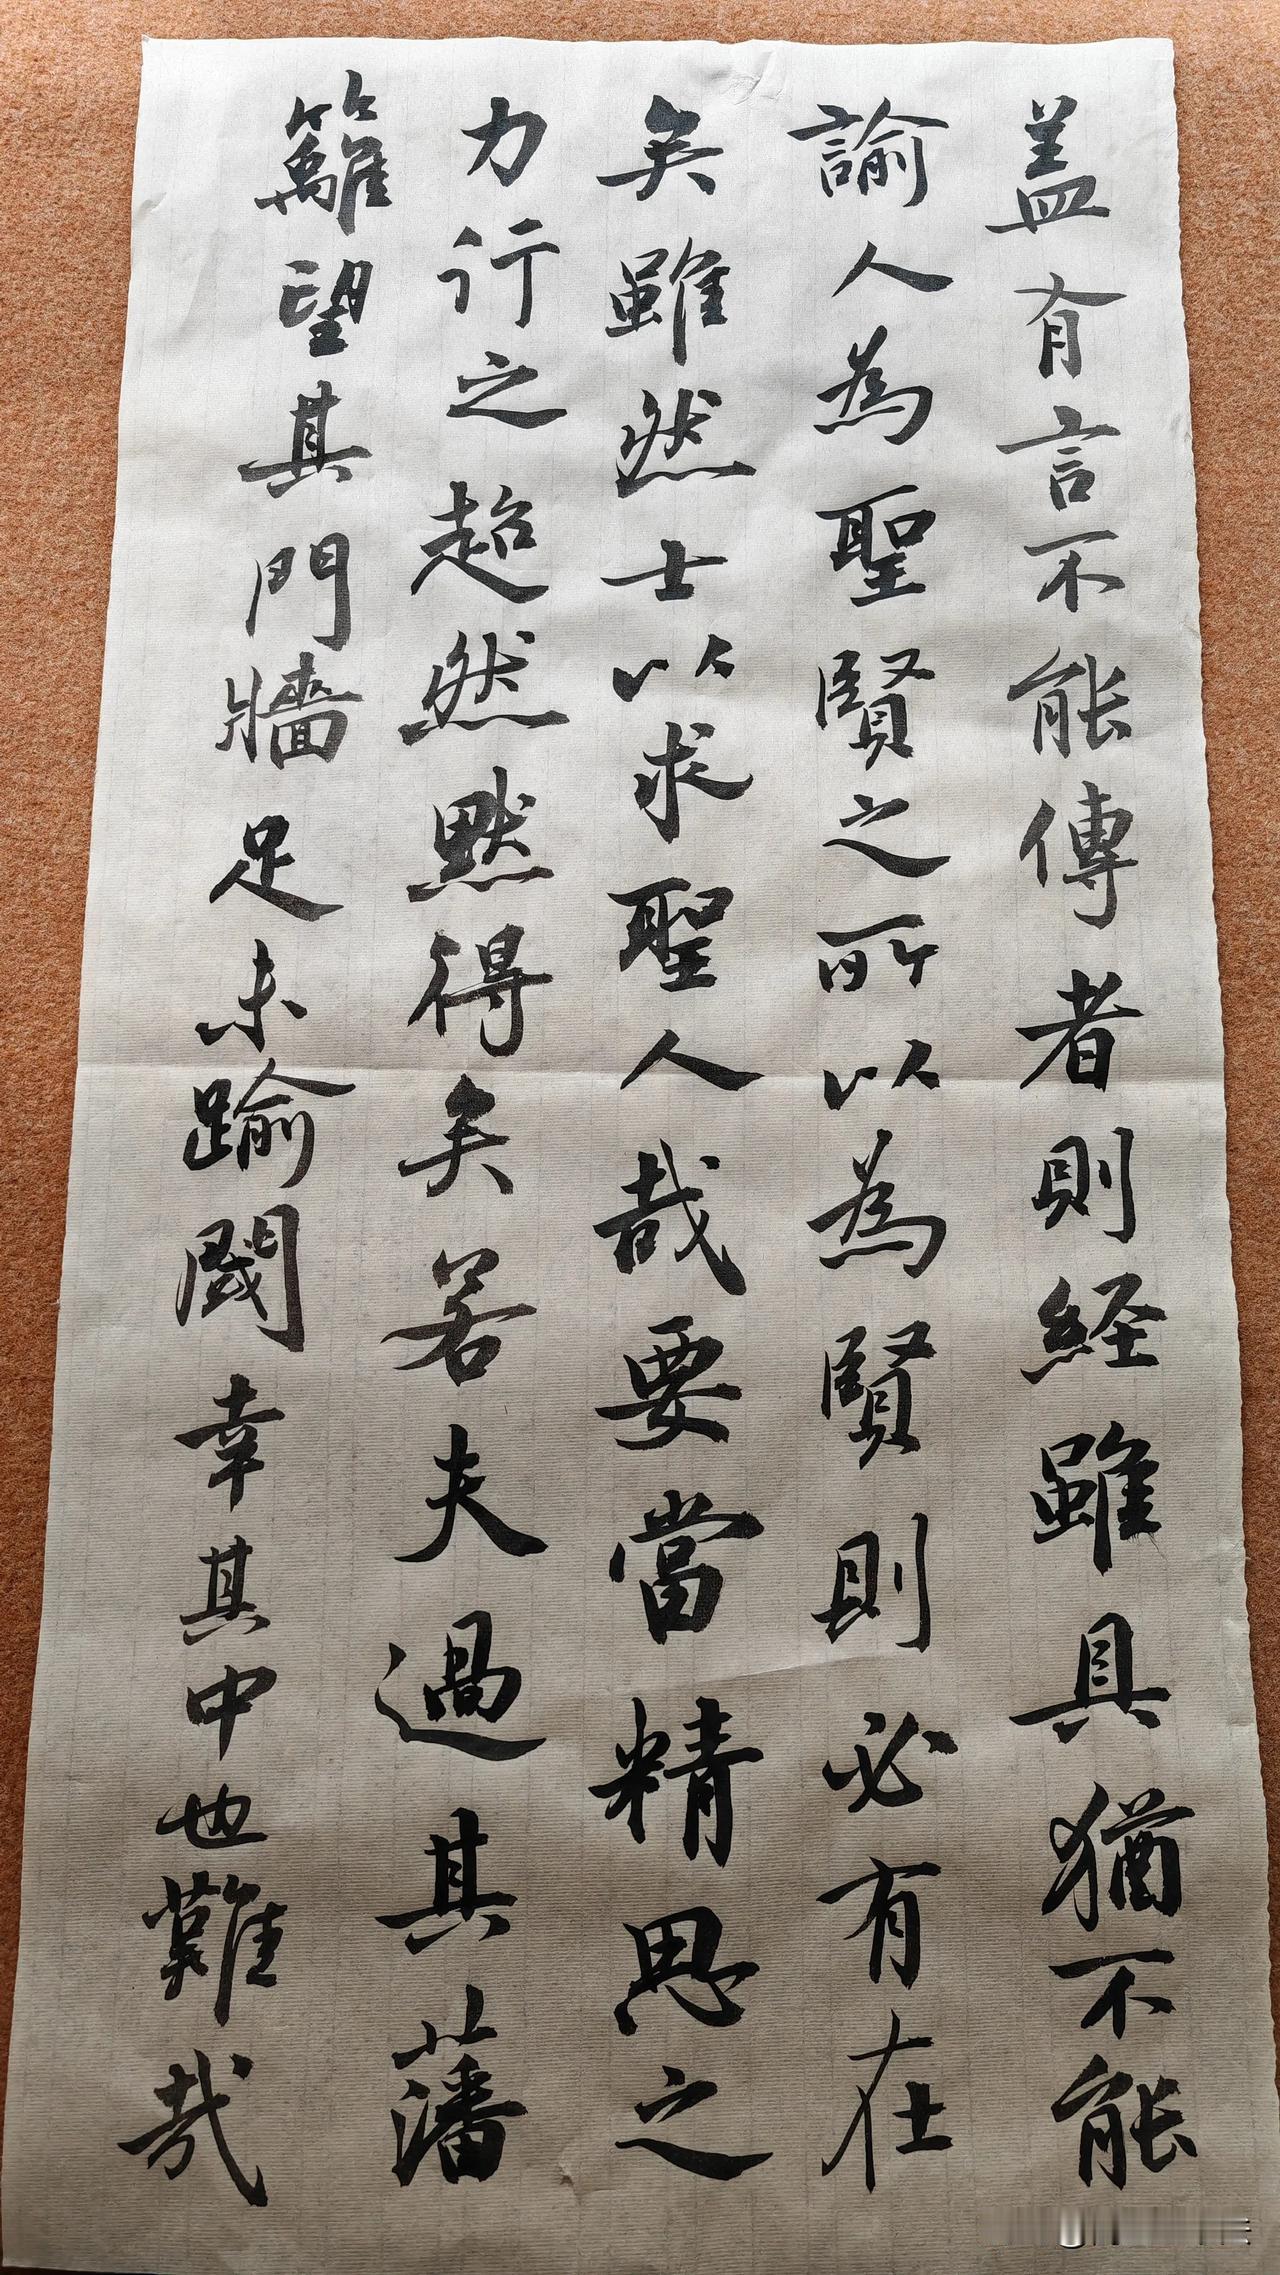 盖有言不能傳者則経雖具猶不能
諭人為聖賢之所以為賢則必有在
矣雖然士以求聖人哉要當精思之
力行之超然默得矣若夫過其藩
籬望其門牆足未踰閾幸其中也難哉